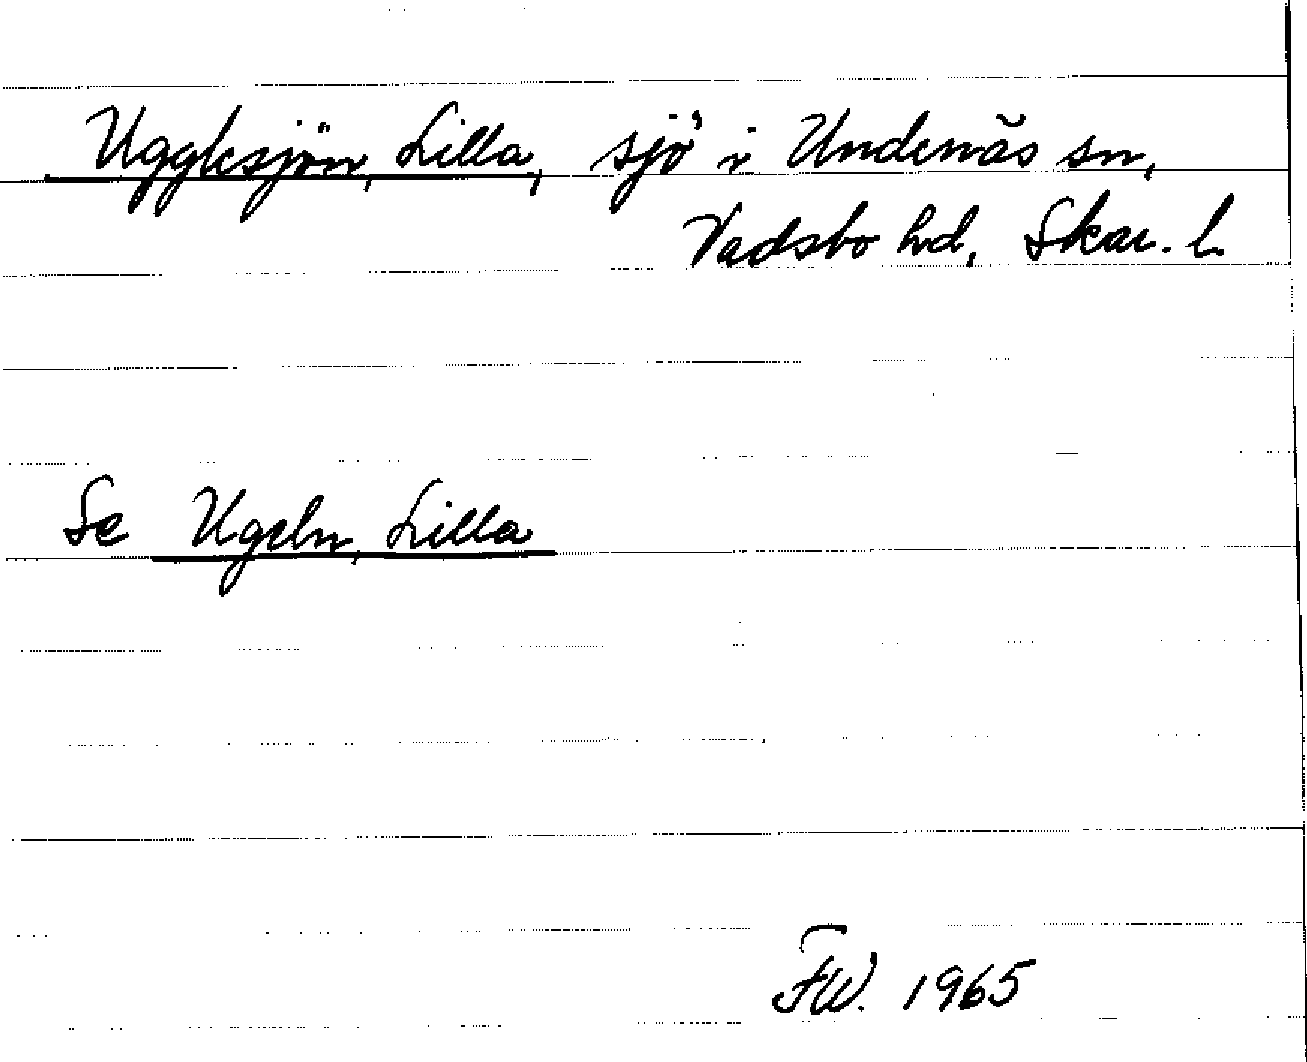 Ugglesjön, Lilla, sjö i Undenäs sn,
Vadsbo hd, Skar. l.
Se Ugeln, Lilla
FW. 1965